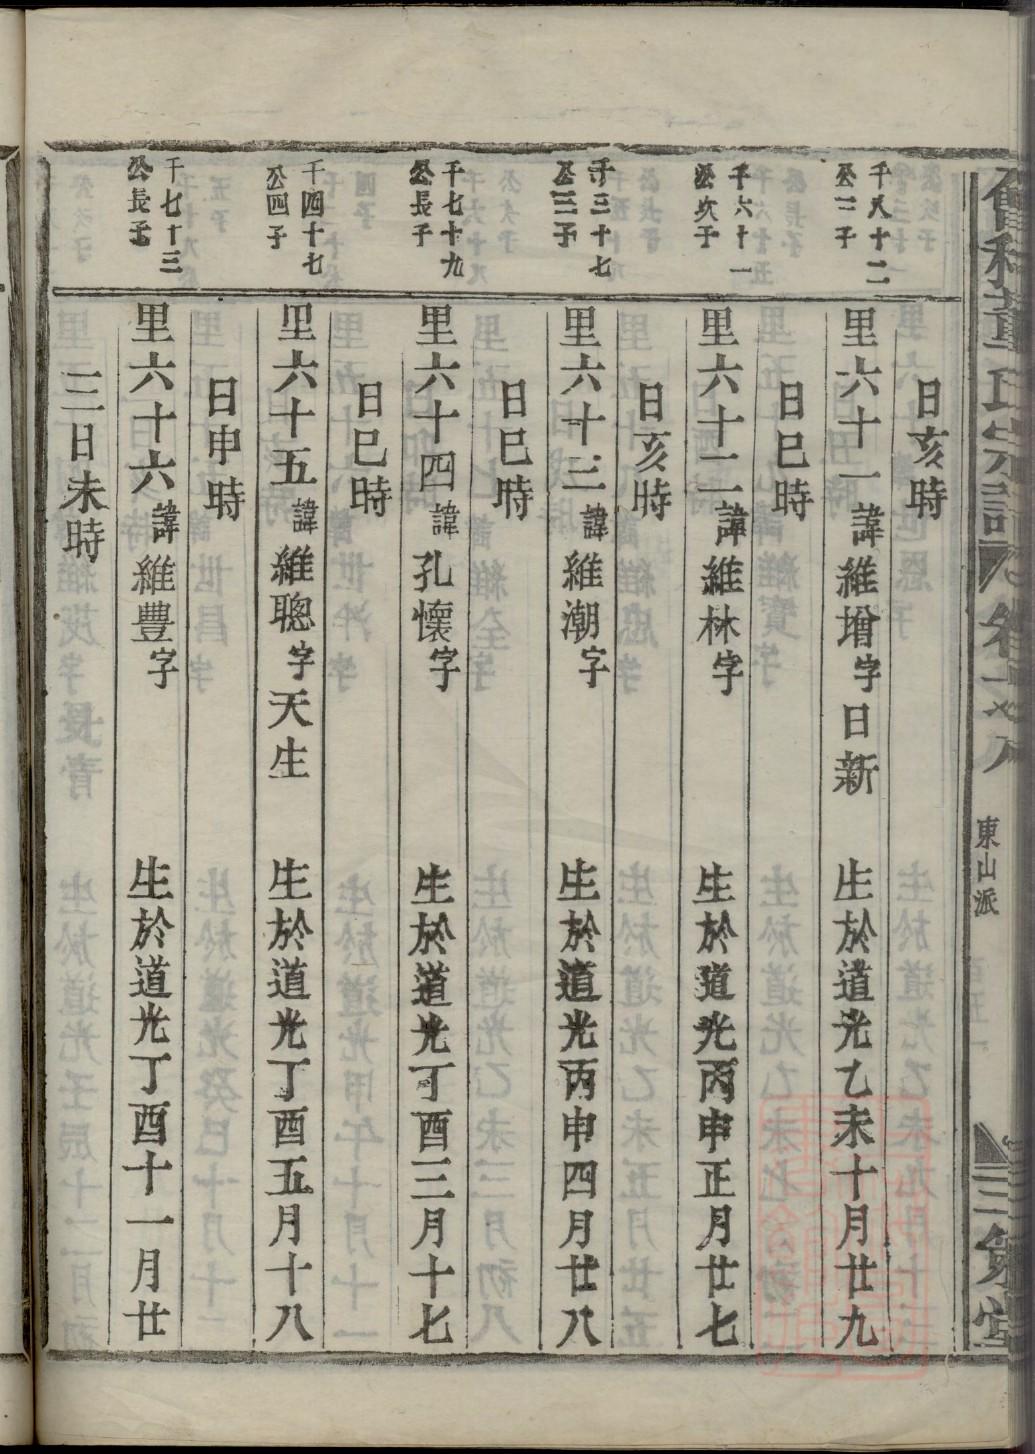 董氏宗譜
東山派
三策堂
日亥時
千八十二
公三子
里六十一諱維增字日新 生於道光乙未十月廿九
日巳時
千六十一
公次子
里六十二諱維林字 生於道光丙申正月廿七
日亥時
千三十七
公三子
里六十三諱維潮字 生於道光丙申四月廿八
日巳時
千七十九
公長子
里六十四諱孔懷字 生於道光丁酉三月十七
日巳時
千四十七
公四子
里六十五諱維聰字天生 生於道光丁酉五月十八
日申時
千七十三
公長子
里六十六諱維豐字 生於道光丁酉十一月廿
三日未時